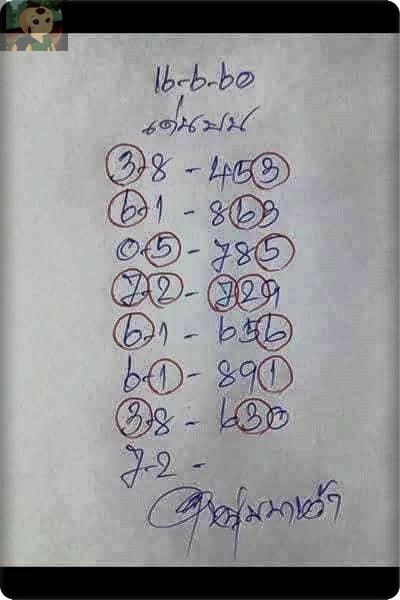 16-6-60
เด่นบน
3-8 - 453
6-1 - 863
0-5 - 785
7-2 - 729
6-1 - 656
6-1 - 891
3-8 - 630
7-2 -